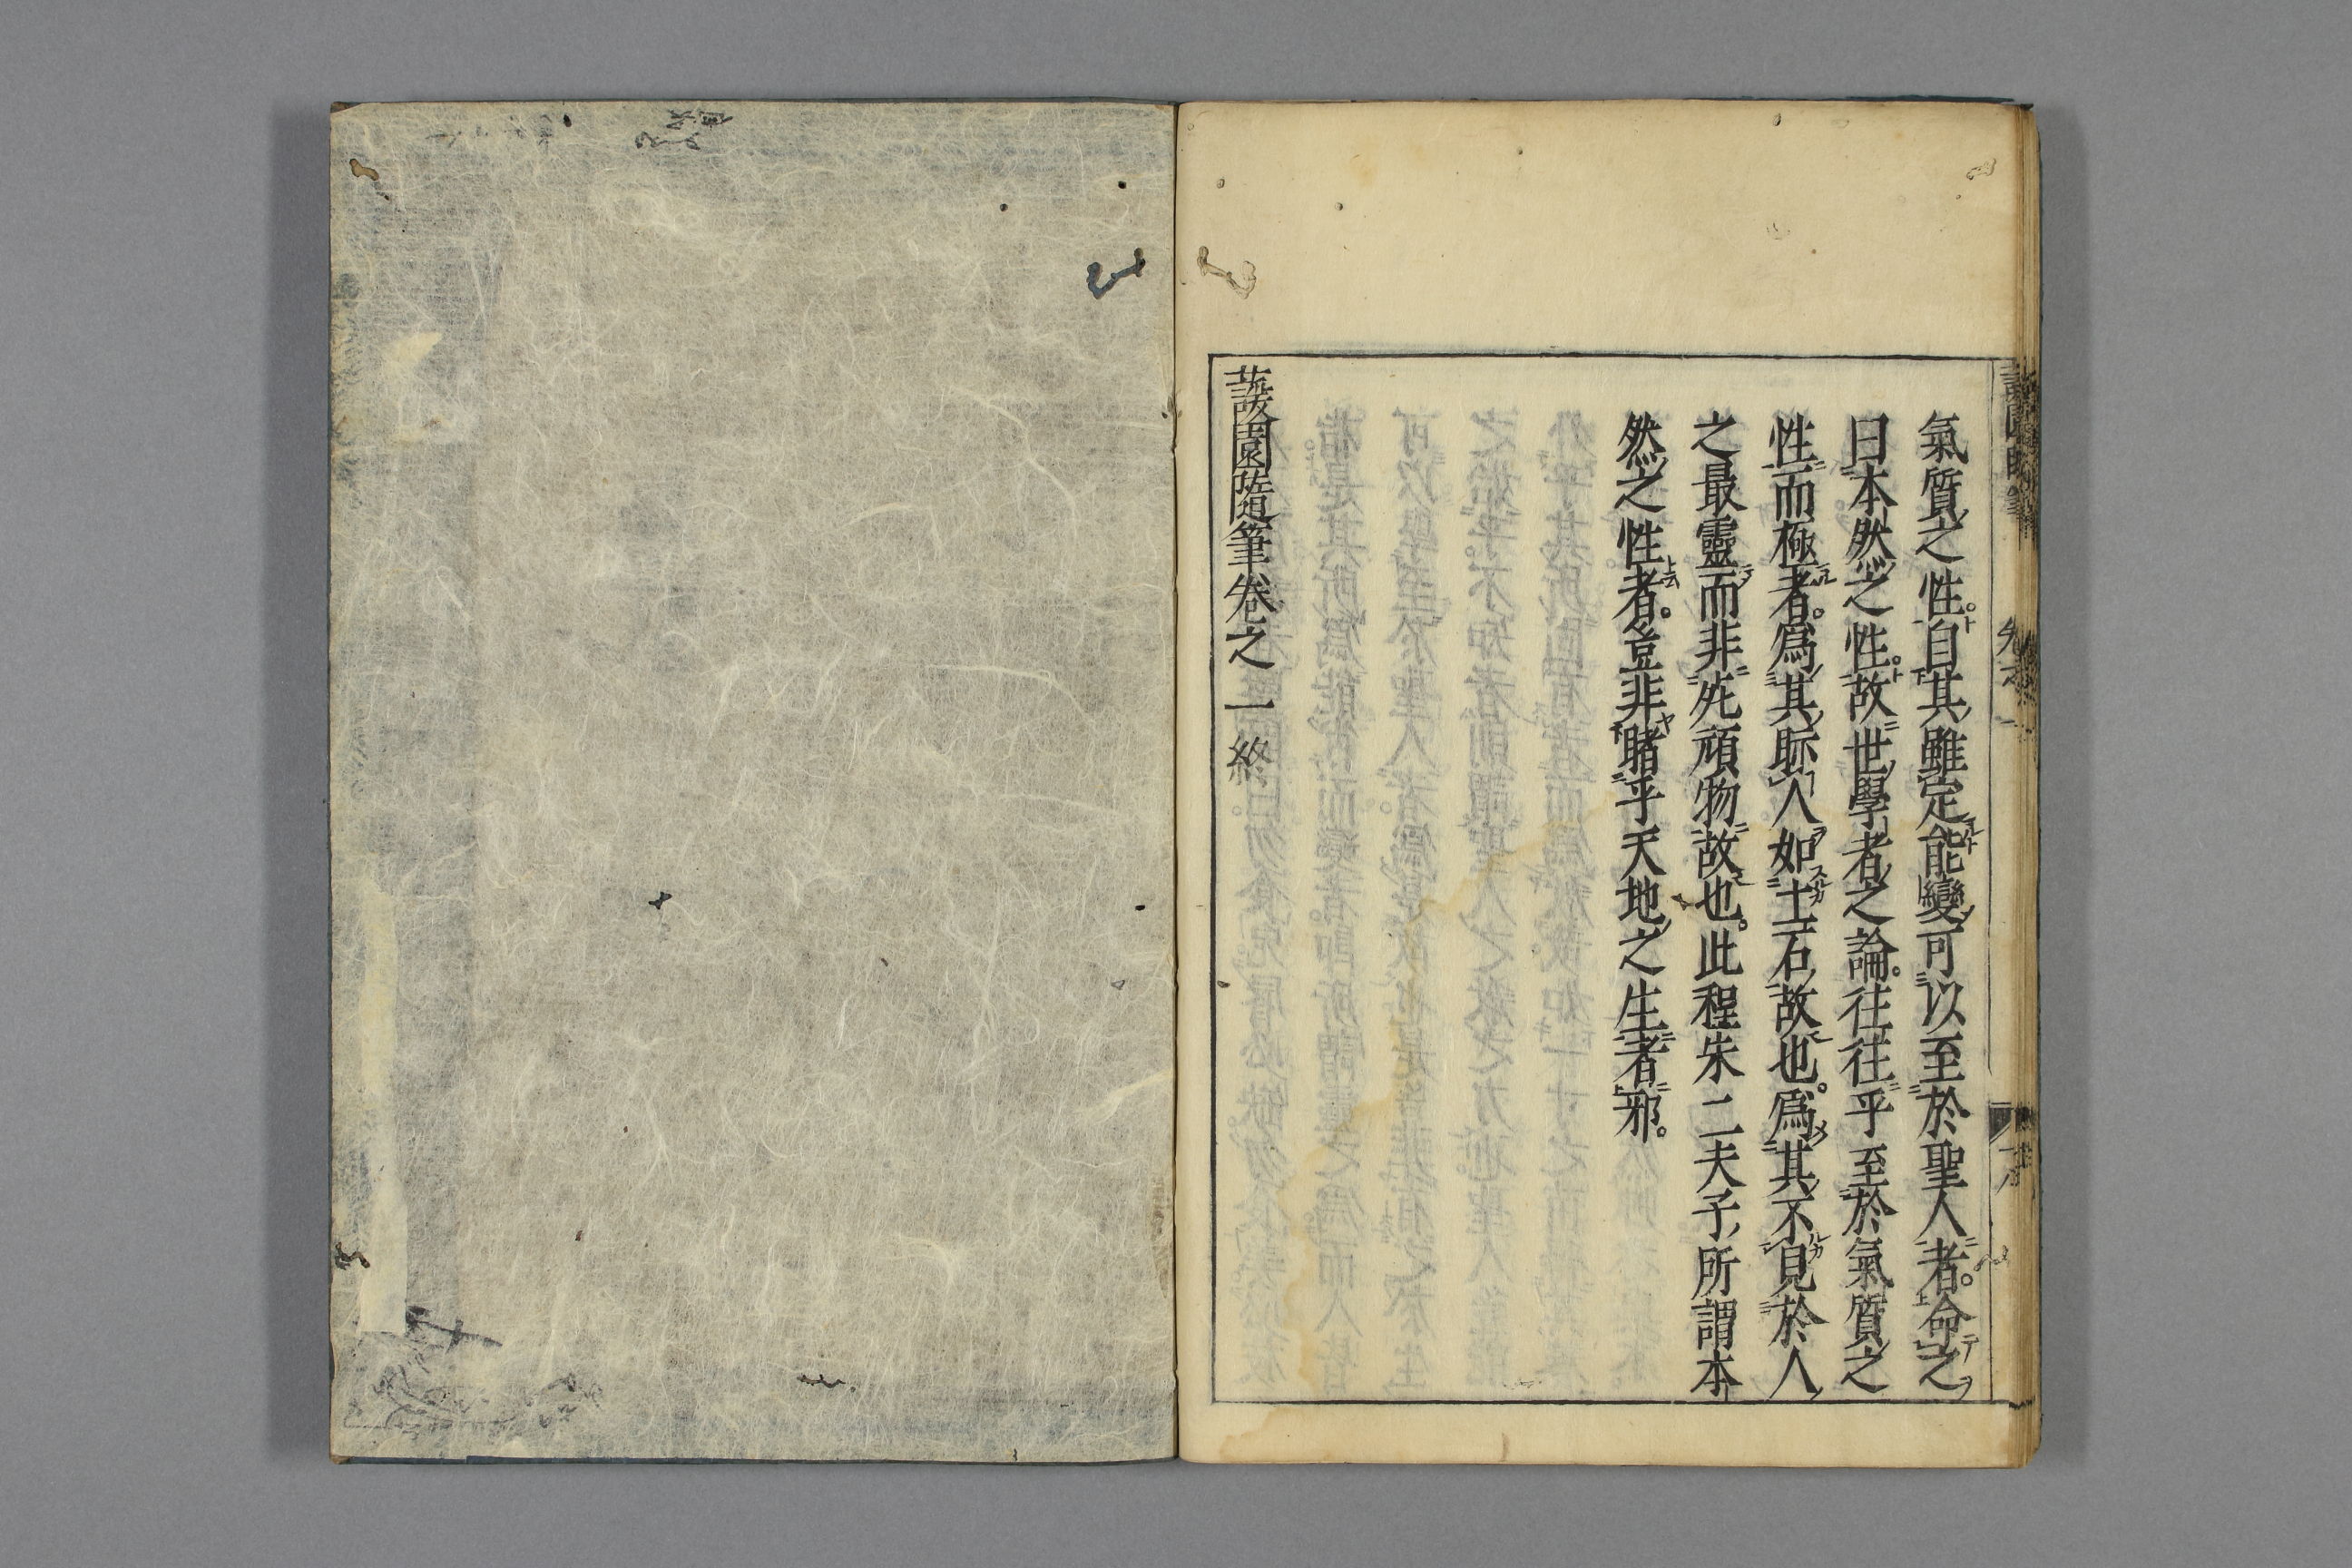 氣質之性。自其雖定能變可以至於聖人者。命之
曰本然之性。故世學者之論。往往乎至於氣質之
性而極者。爲其眎人如土石故也。爲其不見於人
之最靈而非死頑物故也。此程朱二夫子所謂本
然之性者。豈非睹乎天地之生者邪。
蘐園隨筆卷之一終